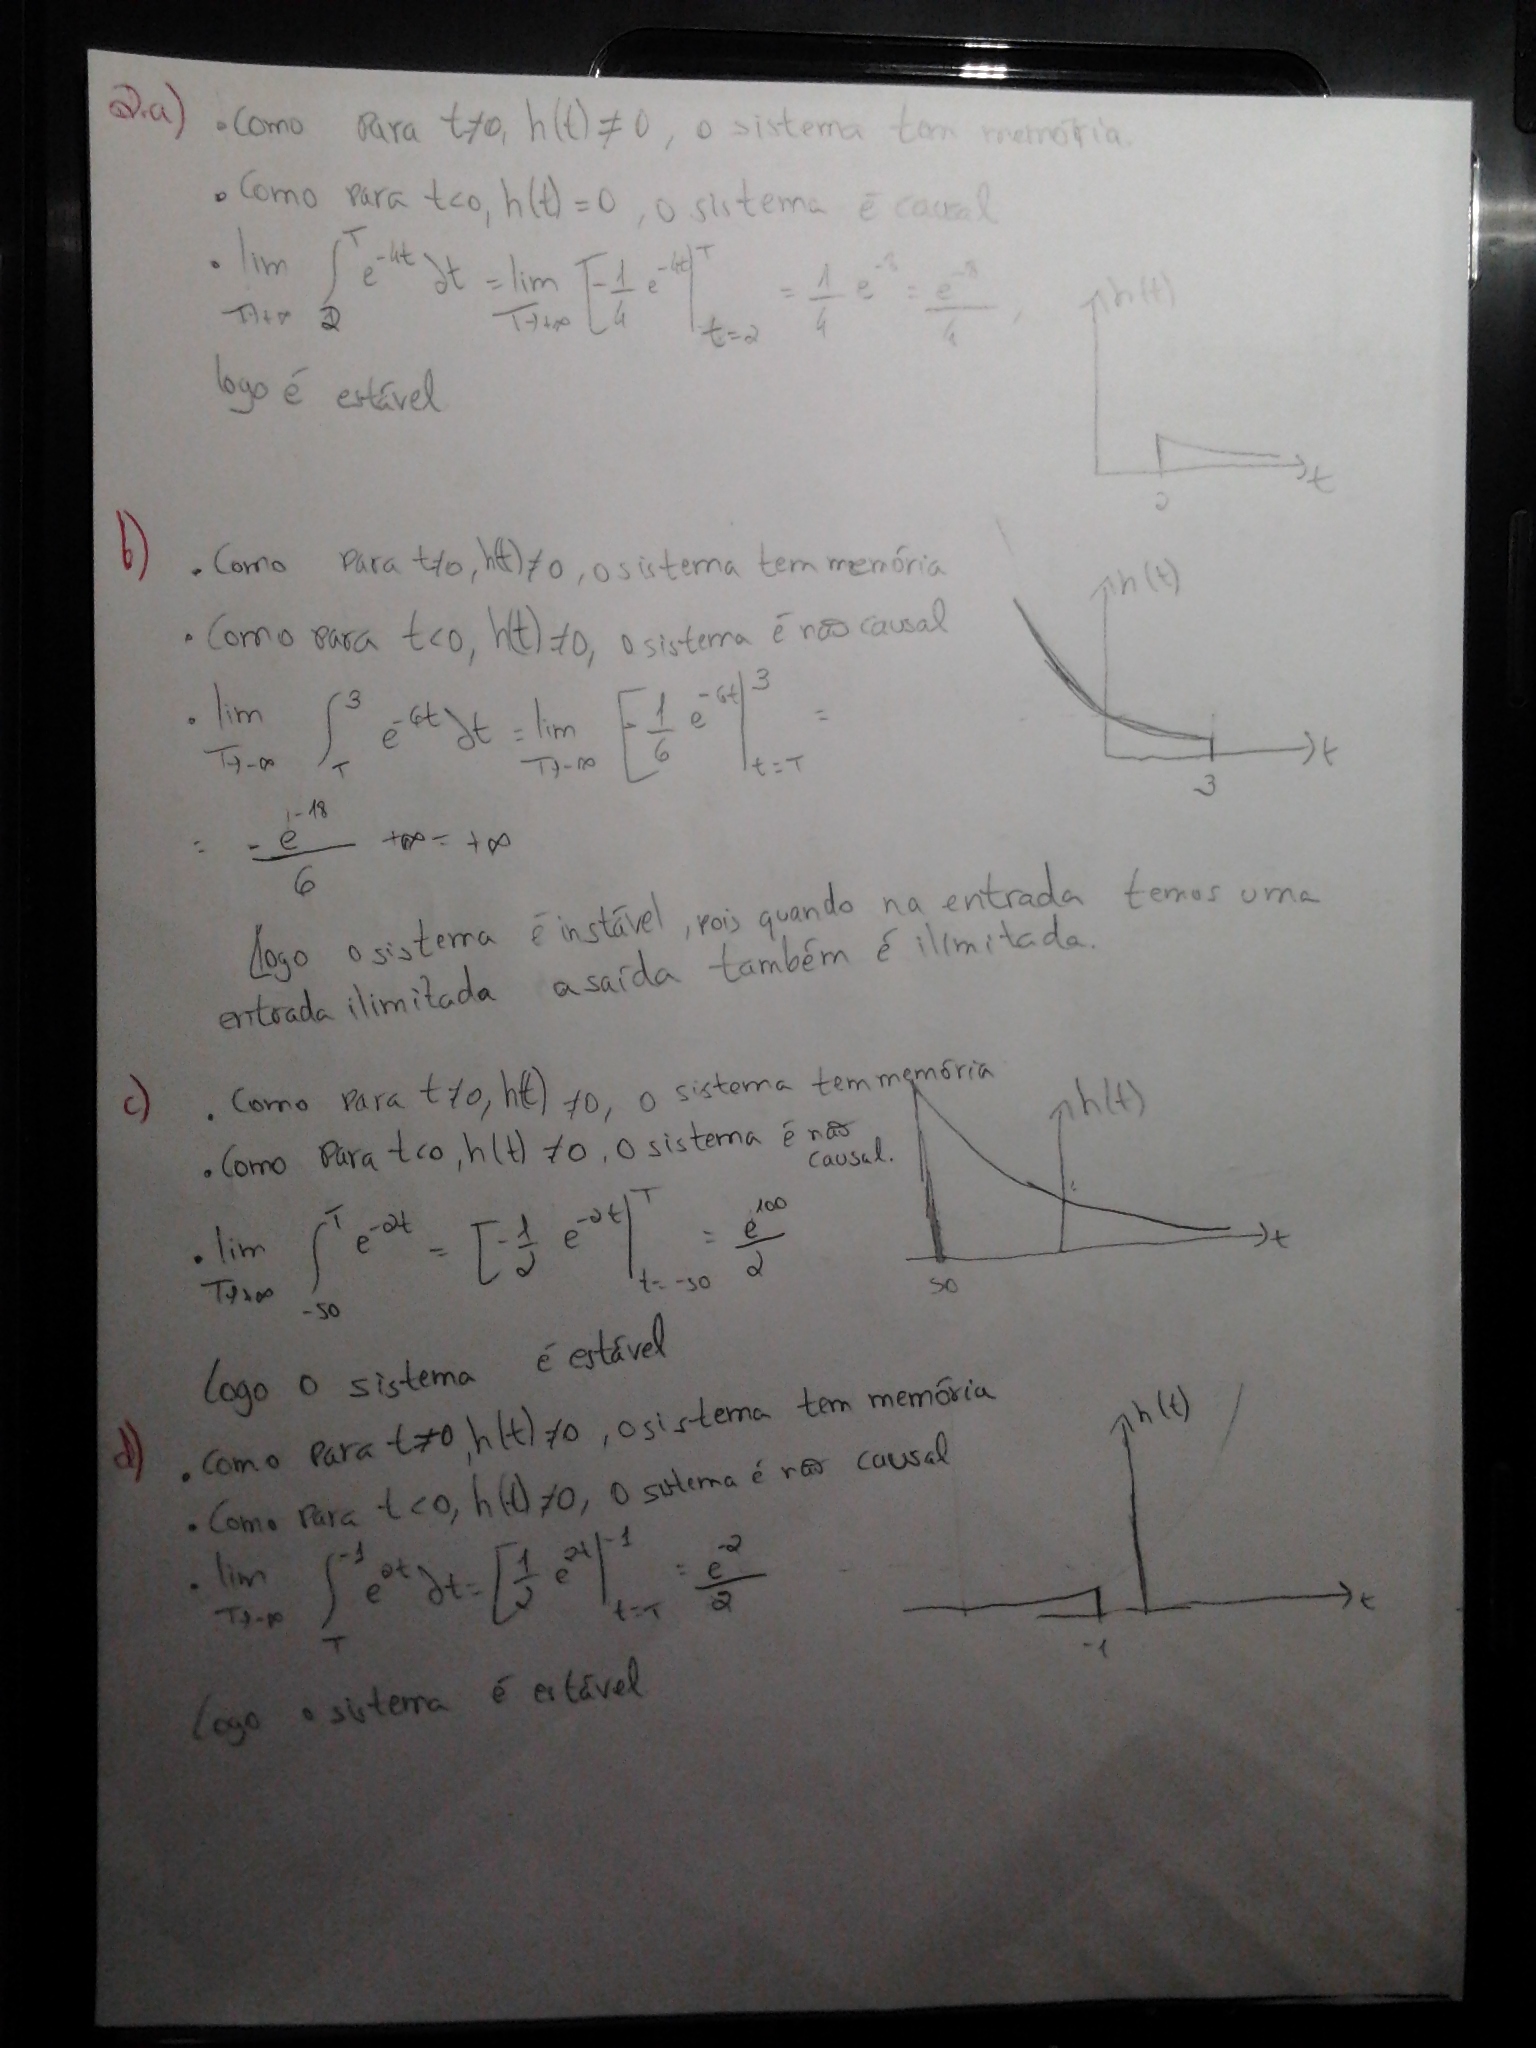 2.a) • Como para t≠0, h(t)≠0, o sistema tem memória.
• Como para t<0, h(t)=0, o sistema é causal
• lim T→+∞ ∫_2^T e^{-4t} ∂t = lim T→+∞ [-1/4 e^{-4t}|_{t=2}^T = 1/4 e^{-8} = e^{-8}/4,
logo é estável
h(t)
t
2
b) • Como para t≠0, h(t)≠0, o sistema tem memória
• Como para t<0, h(t)≠0, o sistema é não causal
• lim T→-∞ ∫_T^3 e^{-6t} ∂t = lim T→-∞ [-1/6 e^{-6t}|_{t=T}^3 =
= -e^{-18}/6 +∞ = +∞
h(t)
t
3
Logo o sistema é instável, pois quando na entrada temos uma
entrada ilimitada a saída também é ilimitada.
c) • Como para t≠0, h(t)≠0, o sistema tem memória
• Como para t<0, h(t)≠0, o sistema é não
causal.
• lim T→+∞ ∫_{-50}^T e^{-2t} = [-1/2 e^{-2t}|_{t=-50}^T = e^{100}/2
h(t)
t
50
Logo o sistema é estável
d) • Como para t≠0, h(t)≠0, o sistema tem memória
• Como para t<0, h(t)≠0, o sistema é não causal
• lim T→-∞ ∫_T^{-1} e^{2t} ∂t = [1/2 e^{2t}|_{t=T}^{-1} = e^{-2}/2
h(t)
t
-1
Logo o sistema é estável